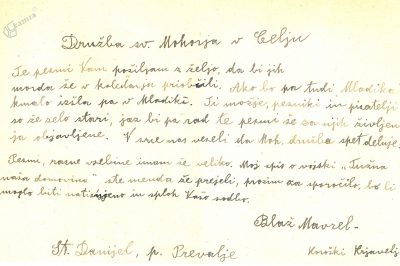 Kamra
Družba sv. Mohorja v Celju
Te pesmi Vam pošiljam z željo, da bi jih
morda še v koledarju priobčili. Ako bo pa tudi Mladika
kmalo izšla pa v Mladiki. Ti možje, pesniki in pisatelji
so že zelo stari, jaz bi pa rad te pesmi še za njih življen-
ja objavljene. V srce nas veseli da Moh. družba spet deluje.
Pesmi, razne vsebine imam še veliko. Moj spis o vojski "Tužna
naša domovina" ste menda že prejeli, prosim za sporočilo, bo li
moglo biti natisnjeno in sploh Vašo sodbo.
Blaž Mavrel-
Št. Danijel, p. Prevalje
Koroški Krjavelj